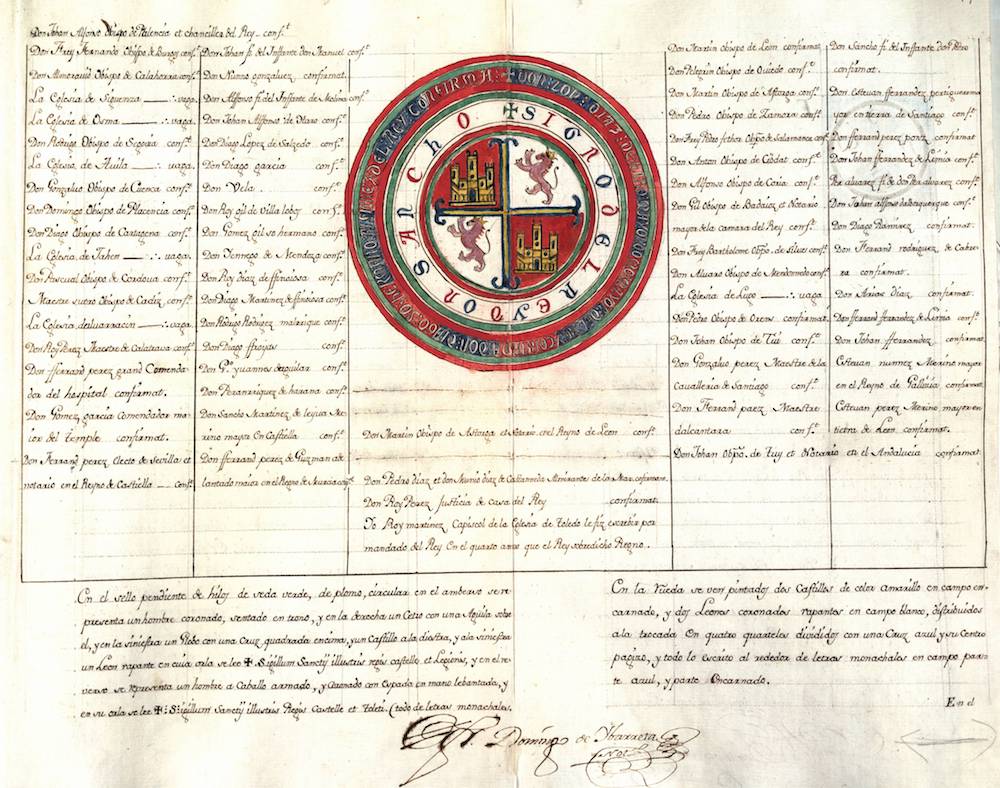 Don Johan Alfonso Obispo de Palencia et chanciller del Rey conf.t
Don Frey Fernando Obispo de Burgos conf.t
Don Almoravid Obispo de Calahorra conf.t
La Eglesia de Siguenza vaga.
La Eglesia de Osma vaga.
Don Rodrigo Obispo de Segovia conf.t
La Eglesia de Auila vaga.
Don Gonzaluo Obispo de Cuenca conf.t
Don Domingo Obispo de Placencia conf.t
Don Diego Obispo de Cartagena conf.t
La Eglesia de Jahen vaga.
Don Pascual Obispo de Cordoua conf.t
Maestre suero Obispo de Cadiz conf.t
La Eglesia de Aluarracin vaga.
Don Roy Perez Maestre de Calatraua conf.t
Don fferrand perez grand Comenda
dor del hospital confirmat.
Don Gomez garcia Comendador ma
ior del temple confirmat.
Don Ferrand perez electo de Sevilla et
notario en el Reyno de Castiella conf.t
Don Johan fi. del Infante don Manuel conf.t
Don Nunno gonzaluez confirmat.
Don Alffonso fi. del Inffante de Molina conf.t
Don Johan Alffonso de Haro conf.t
Don Diego Lopez de Salzedo conf.t
Don Diago garcia conf.t
Don Vela conf.t
Don Roy gil de Villa lobos conf.t
Don Gomez gil so hermano conf.t
Don Yennego de Mendoza conf.t
Don Roy Diaz de ffinoiosa conf.t
Don Diago Martinez de finoiosa conf.t
Don Rodrigo Rodriguez malrrique conf.t
Don Diago ffroyaz conf.t
Don G.o yuannes daguilar conf.t
Don Peranrriquez de harana conf.t
Don Sancho Martinez de leyua Me
rino mayor en Castiella conf.t
Don fferrand perez de Guzman ade
lantado maior en el Regno de Murcia conf.t
✠ SIGNO DEL REY DON SANCHO
Don Martin Obispo de Astorga et Notario en el Reyno de Leon conf.t
Don Pedro diaz et don Nunno diaz de Castanneda Almirantes de la Mar. confirman.
Don Roy Perez Justicia de casa del Rey confirmat.
Yo Roy martinez Capiscol de la Eglesia de Toledo le fiz escrebir por
mandado del Rey en el quarto anno que el Rey sobredicho Regno.
Don Martin Obispo de Leon confirmat
Don Pelegrin Obispo de Oviedo conf.t
Don Martin Obispo de Astorga conf.t
Don Pedro Obispo de Zamora conf.t
Don Frey Pedro Obpo. de Salamanca conf.t
Don Anton Obispo de Cibdat conf.t
Don Alffonso Obispo de Coria conf.t
Don Gil Obispo de Badaioz et Notario
mayor de la camara del Rey conf.t
Don Frey Bartholome Obpo. de Silues conf.t
Don Aluaro Obispo de Mendonnedo conf.t
La Eglesia de Lugo vaga.
Don Pedro Obispo de Orens confirmat
Don Johan Obispo de Tui conf.t
Don Gonzaluo perez Maestre de la
Cavalleria de Santiago conf.t
Don Ferrand paez Maestre
dalcantara conf.t
Don Johan Obpo. de Tuy et Notario en el Andalucia confirmat.
Don Sancho fi. del Inffante don Pedro
confirmat.
Don Estevan fferrandez pertiguero ma
yor en tierra de Santiago conf.t
Don fferrand perez ponz confirmat
Don Johan fferrandez de Limia conf.t
Per aluarez fi. de don Per aluarez conf.t
Don Johan alfonso dalburquerque conf.t
Don Diago Ramirez confirmat.
Don Fferrand rodriguez de Cabre
ra confirmat.
Don Arias diaz confirmat.
Don fferrand fferrandez de Limia conf.t
Don Johan fferrandez confirmat
Estevan nunnez Merino mayor
en el Reyno de Gallicia confirmat
Estevan perez Merino mayor en
tierra de Leon confirmat.
En el sello pendiente de hilos de seda verde, de plomo, circular en el amberso se re
presenta un hombre coronado, sentado en trono, y en la derecha un Cetro con una Aguila sobre
el, y en la siniestra un Globo con una Cruz quadrada encima, y un Castillo a la diestra, y a la siniestra
un Leon rapante en cuia orla se lee ✠ Sigillum Sanctij illustris regis castelle et Legionis, y en el re
verso se representa un hombre a Caballo armado, y Coronado con Espada en mano lebantada, y
en su orla se lee ✠ S. igillum Sanctij illustris Regis Castelle et Toleti. (todo de letras monachales.
En la Rueda se ven pintados dos Castillos de color Amarillo en campo en
carnado, y dos Leones coronados rapantes en campo blanco, distribuidos
a la trocada en quatro quarteles divididos con una Cruz azul y su Centro
pagizo, y todo lo escrito al rededor de letras monachales en campo par
te azul, y parte encarnado.
En el
Domingo de Ybarreta